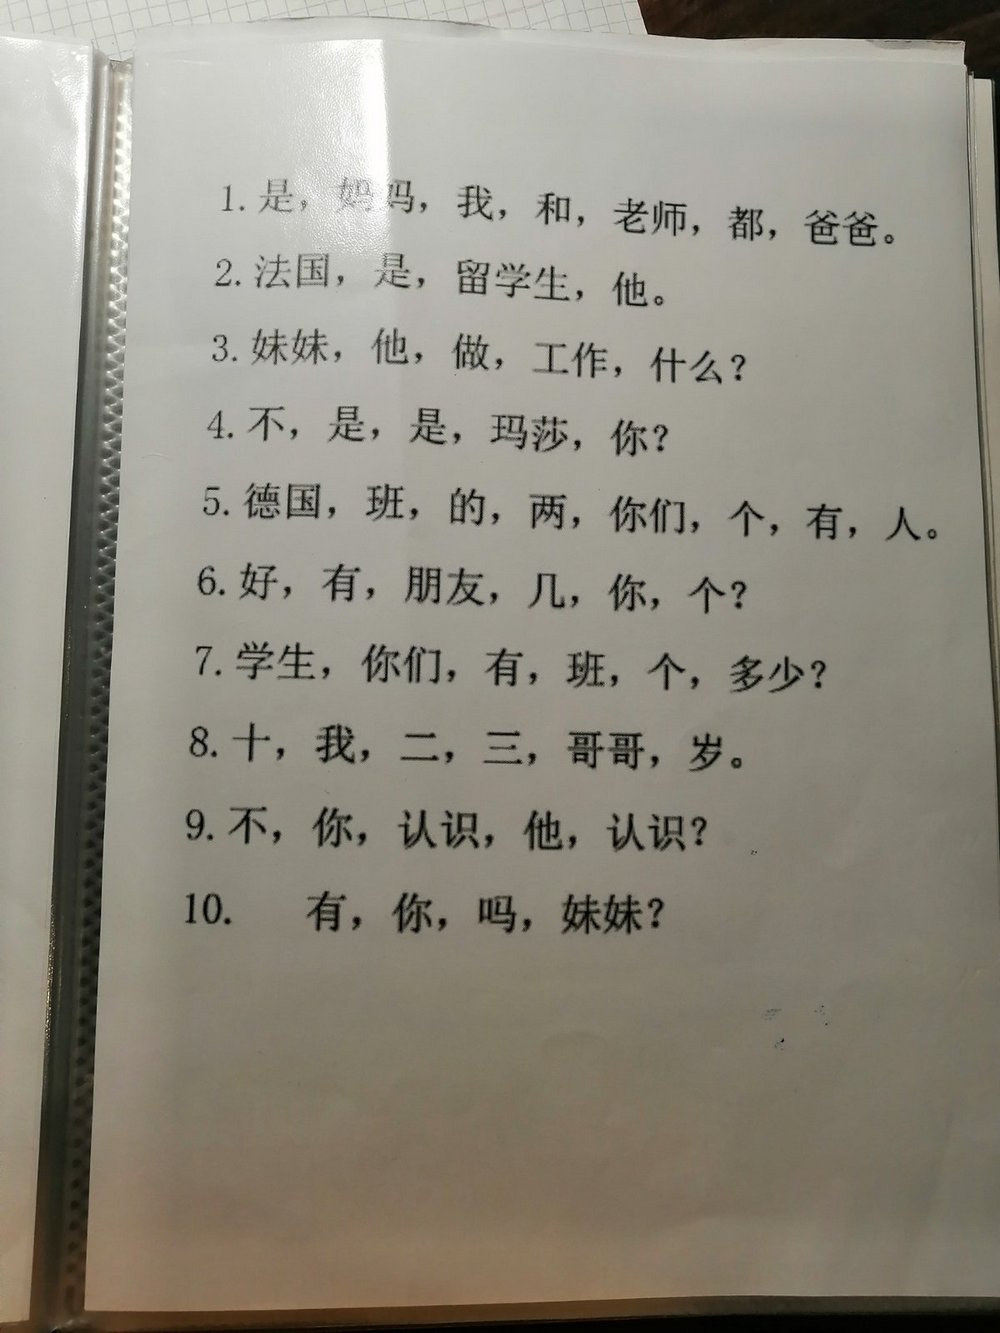 1. 是，妈妈，我，和，老师，都，爸爸。
2. 法国，是，留学生，他。
3. 妹妹，他，做，工作，什么？
4. 不，是，是，玛莎，你？
5. 德国，班，的，两，你们，个，有，人。
6. 好，有，朋友，几，你，个？
7. 学生，你们，有，班，个，多少？
8. 十，我，二，三，哥哥，岁。
9. 不，你，认识，他，认识？
10. 有，你，吗，妹妹？